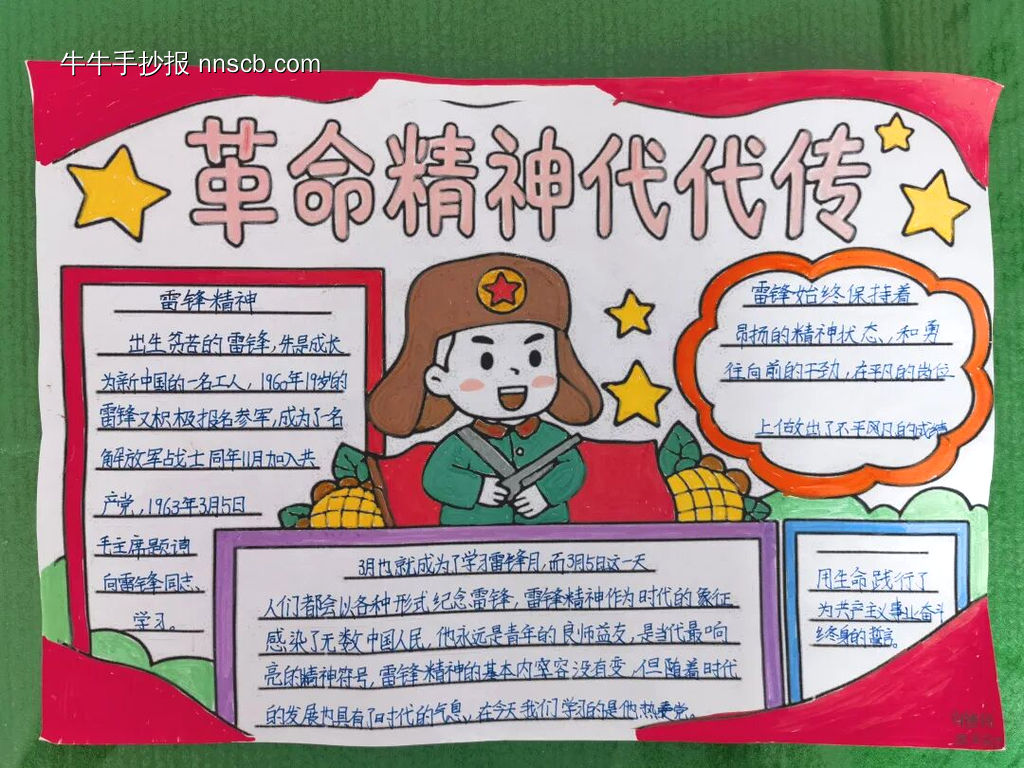 牛牛手抄报 nnscb.com
革命精神代代传
雷锋精神
出生贫苦的雷锋,先是成长
为新中国的一名工人,1960年19岁的
雷锋又积极报名参军,成为了名
解放军战士同年11月加入共
产党,1963年3月5日
毛主席题词
向雷锋同志、
学习。
雷锋始终保持着
昂扬的精神状态、和勇
往向前的干劲,在平凡的岗位
上做出了不平凡的成绩
3月也就成为了学习雷锋月,而3月5日这一天
人们都会以各种形式纪念雷锋,雷锋精神作为时代的象征
感染了无数中国人民,他永远是青年的良师益友,是当代最响
亮的精神符号,雷锋精神的基本内容没有变,但随着时代
的发展也具有了时代的气息、在今天我们学习的是他热爱党。
用生命践行了
为共产主义事业奋斗
终身的誓言。